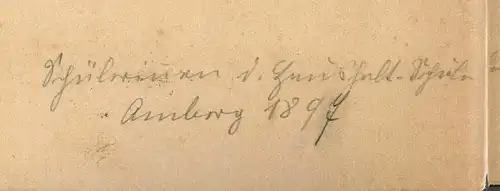 Schülerinnen d. Haushalt-Schule
Amberg 1897